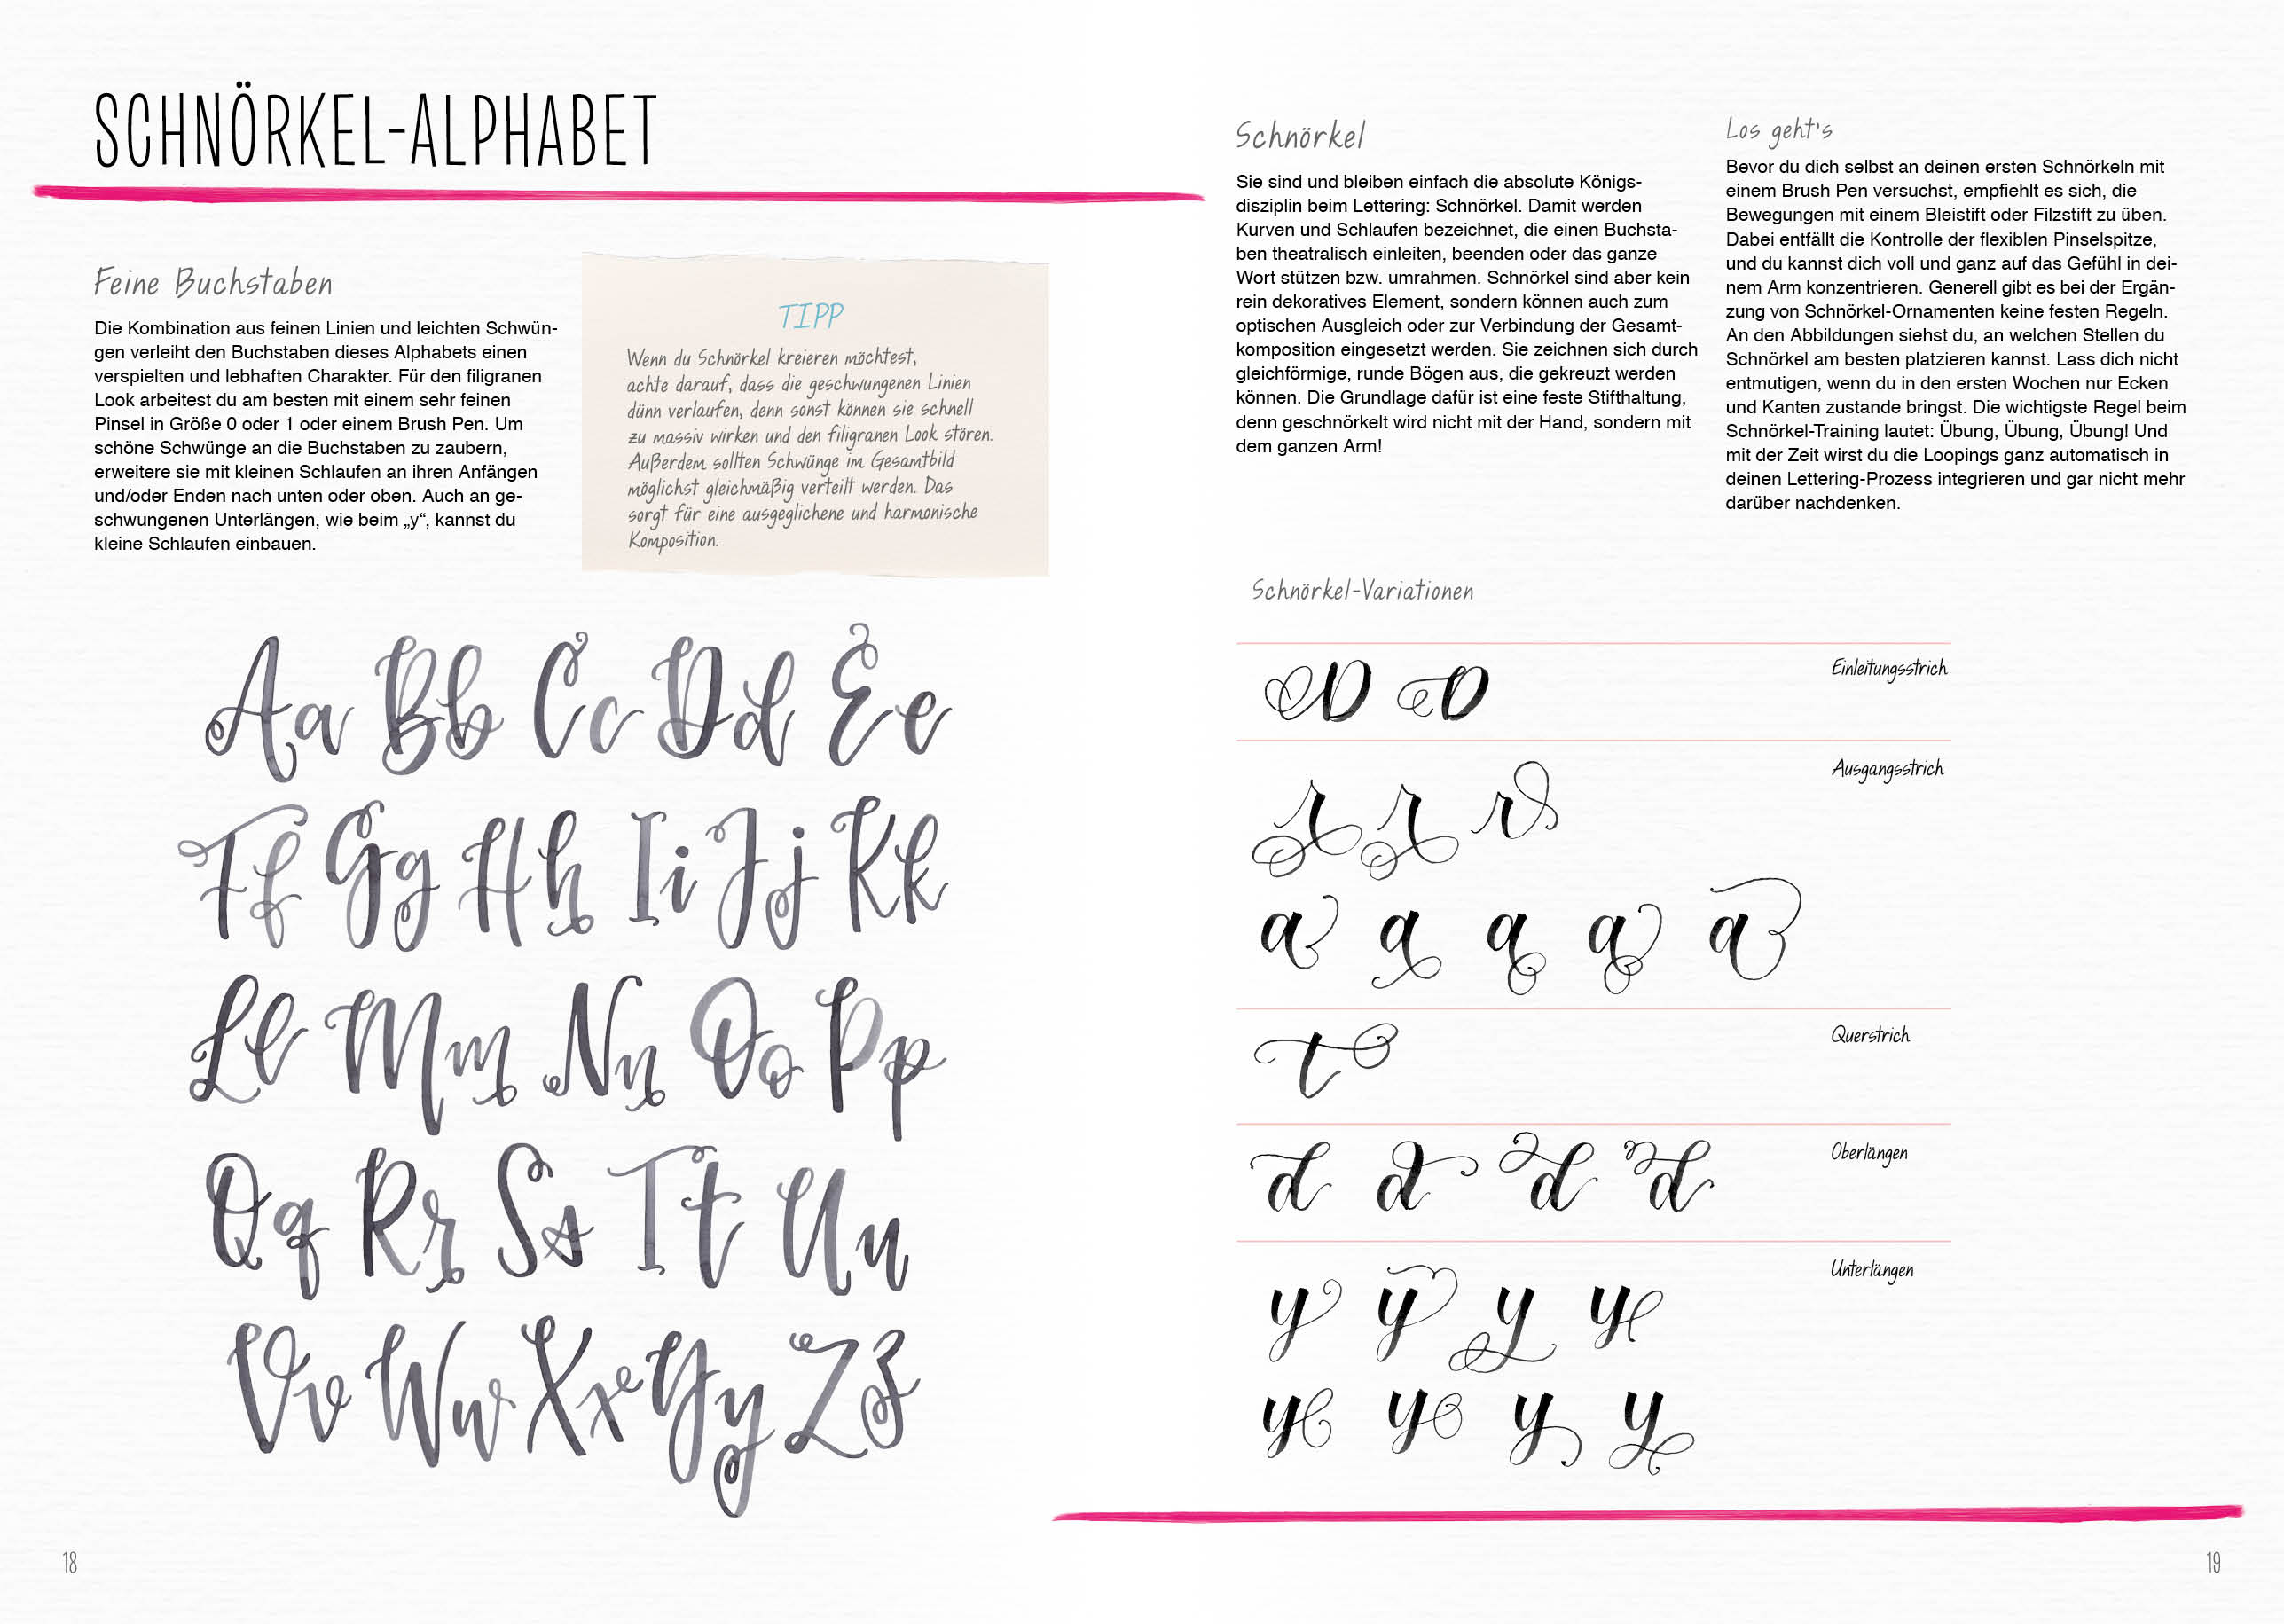 SCHNÖRKEL-ALPHABET
Feine Buchstaben
Die Kombination aus feinen Linien und leichten Schwün-
gen verleiht den Buchstaben dieses Alphabets einen
verspielten und lebhaften Charakter. Für den filigranen
Look arbeitest du am besten mit einem sehr feinen
Pinsel in Größe 0 oder 1 oder einem Brush Pen. Um
schöne Schwünge an die Buchstaben zu zaubern,
erweitere sie mit kleinen Schlaufen an ihren Anfängen
und/oder Enden nach unten oder oben. Auch an ge-
schwungenen Unterlängen, wie beim „y“, kannst du
kleine Schlaufen einbauen.
TIPP
Wenn du Schnörkel kreieren möchtest,
achte darauf, dass die geschwungenen Linien
dünn verlaufen, denn sonst können sie schnell
zu massiv wirken und den filigranen Look stören.
Außerdem sollten Schwünge im Gesamtbild
möglichst gleichmäßig verteilt werden. Das
sorgt für eine ausgeglichene und harmonische
Komposition.
Aa Bb Cc Dd Ee
Ff Gg Hh Ii Jj Kk
Ll Mm Nn Oo Pp
Qq Rr Ss Tt Uu
Vv Ww Xx Yy Zz
18
Schnörkel
Sie sind und bleiben einfach die absolute Königs-
disziplin beim Lettering: Schnörkel. Damit werden
Kurven und Schlaufen bezeichnet, die einen Buchsta-
ben theatralisch einleiten, beenden oder das ganze
Wort stützen bzw. umrahmen. Schnörkel sind aber kein
rein dekoratives Element, sondern können auch zum
optischen Ausgleich oder zur Verbindung der Gesamt-
komposition eingesetzt werden. Sie zeichnen sich durch
gleichförmige, runde Bögen aus, die gekreuzt werden
können. Die Grundlage dafür ist eine feste Stifthaltung,
denn geschnörkelt wird nicht mit der Hand, sondern mit
dem ganzen Arm!
Los geht's
Bevor du dich selbst an deinen ersten Schnörkeln mit
einem Brush Pen versuchst, empfiehlt es sich, die
Bewegungen mit einem Bleistift oder Filzstift zu üben.
Dabei entfällt die Kontrolle der flexiblen Pinselspitze,
und du kannst dich voll und ganz auf das Gefühl in dei-
nem Arm konzentrieren. Generell gibt es bei der Ergän-
zung von Schnörkel-Ornamenten keine festen Regeln.
An den Abbildungen siehst du, an welchen Stellen du
Schnörkel am besten platzieren kannst. Lass dich nicht
entmutigen, wenn du in den ersten Wochen nur Ecken
und Kanten zustande bringst. Die wichtigste Regel beim
Schnörkel-Training lautet: Übung, Übung, Übung! Und
mit der Zeit wirst du die Loopings ganz automatisch in
deinen Lettering-Prozess integrieren und gar nicht mehr
darüber nachdenken.
Schnörkel-Variationen
Einleitungsstrich
Ausgangsstrich
r r r
a a a a a
t
Querstrich
d d d d
Oberlängen
Unterlängen
y y y y
y y y y
19